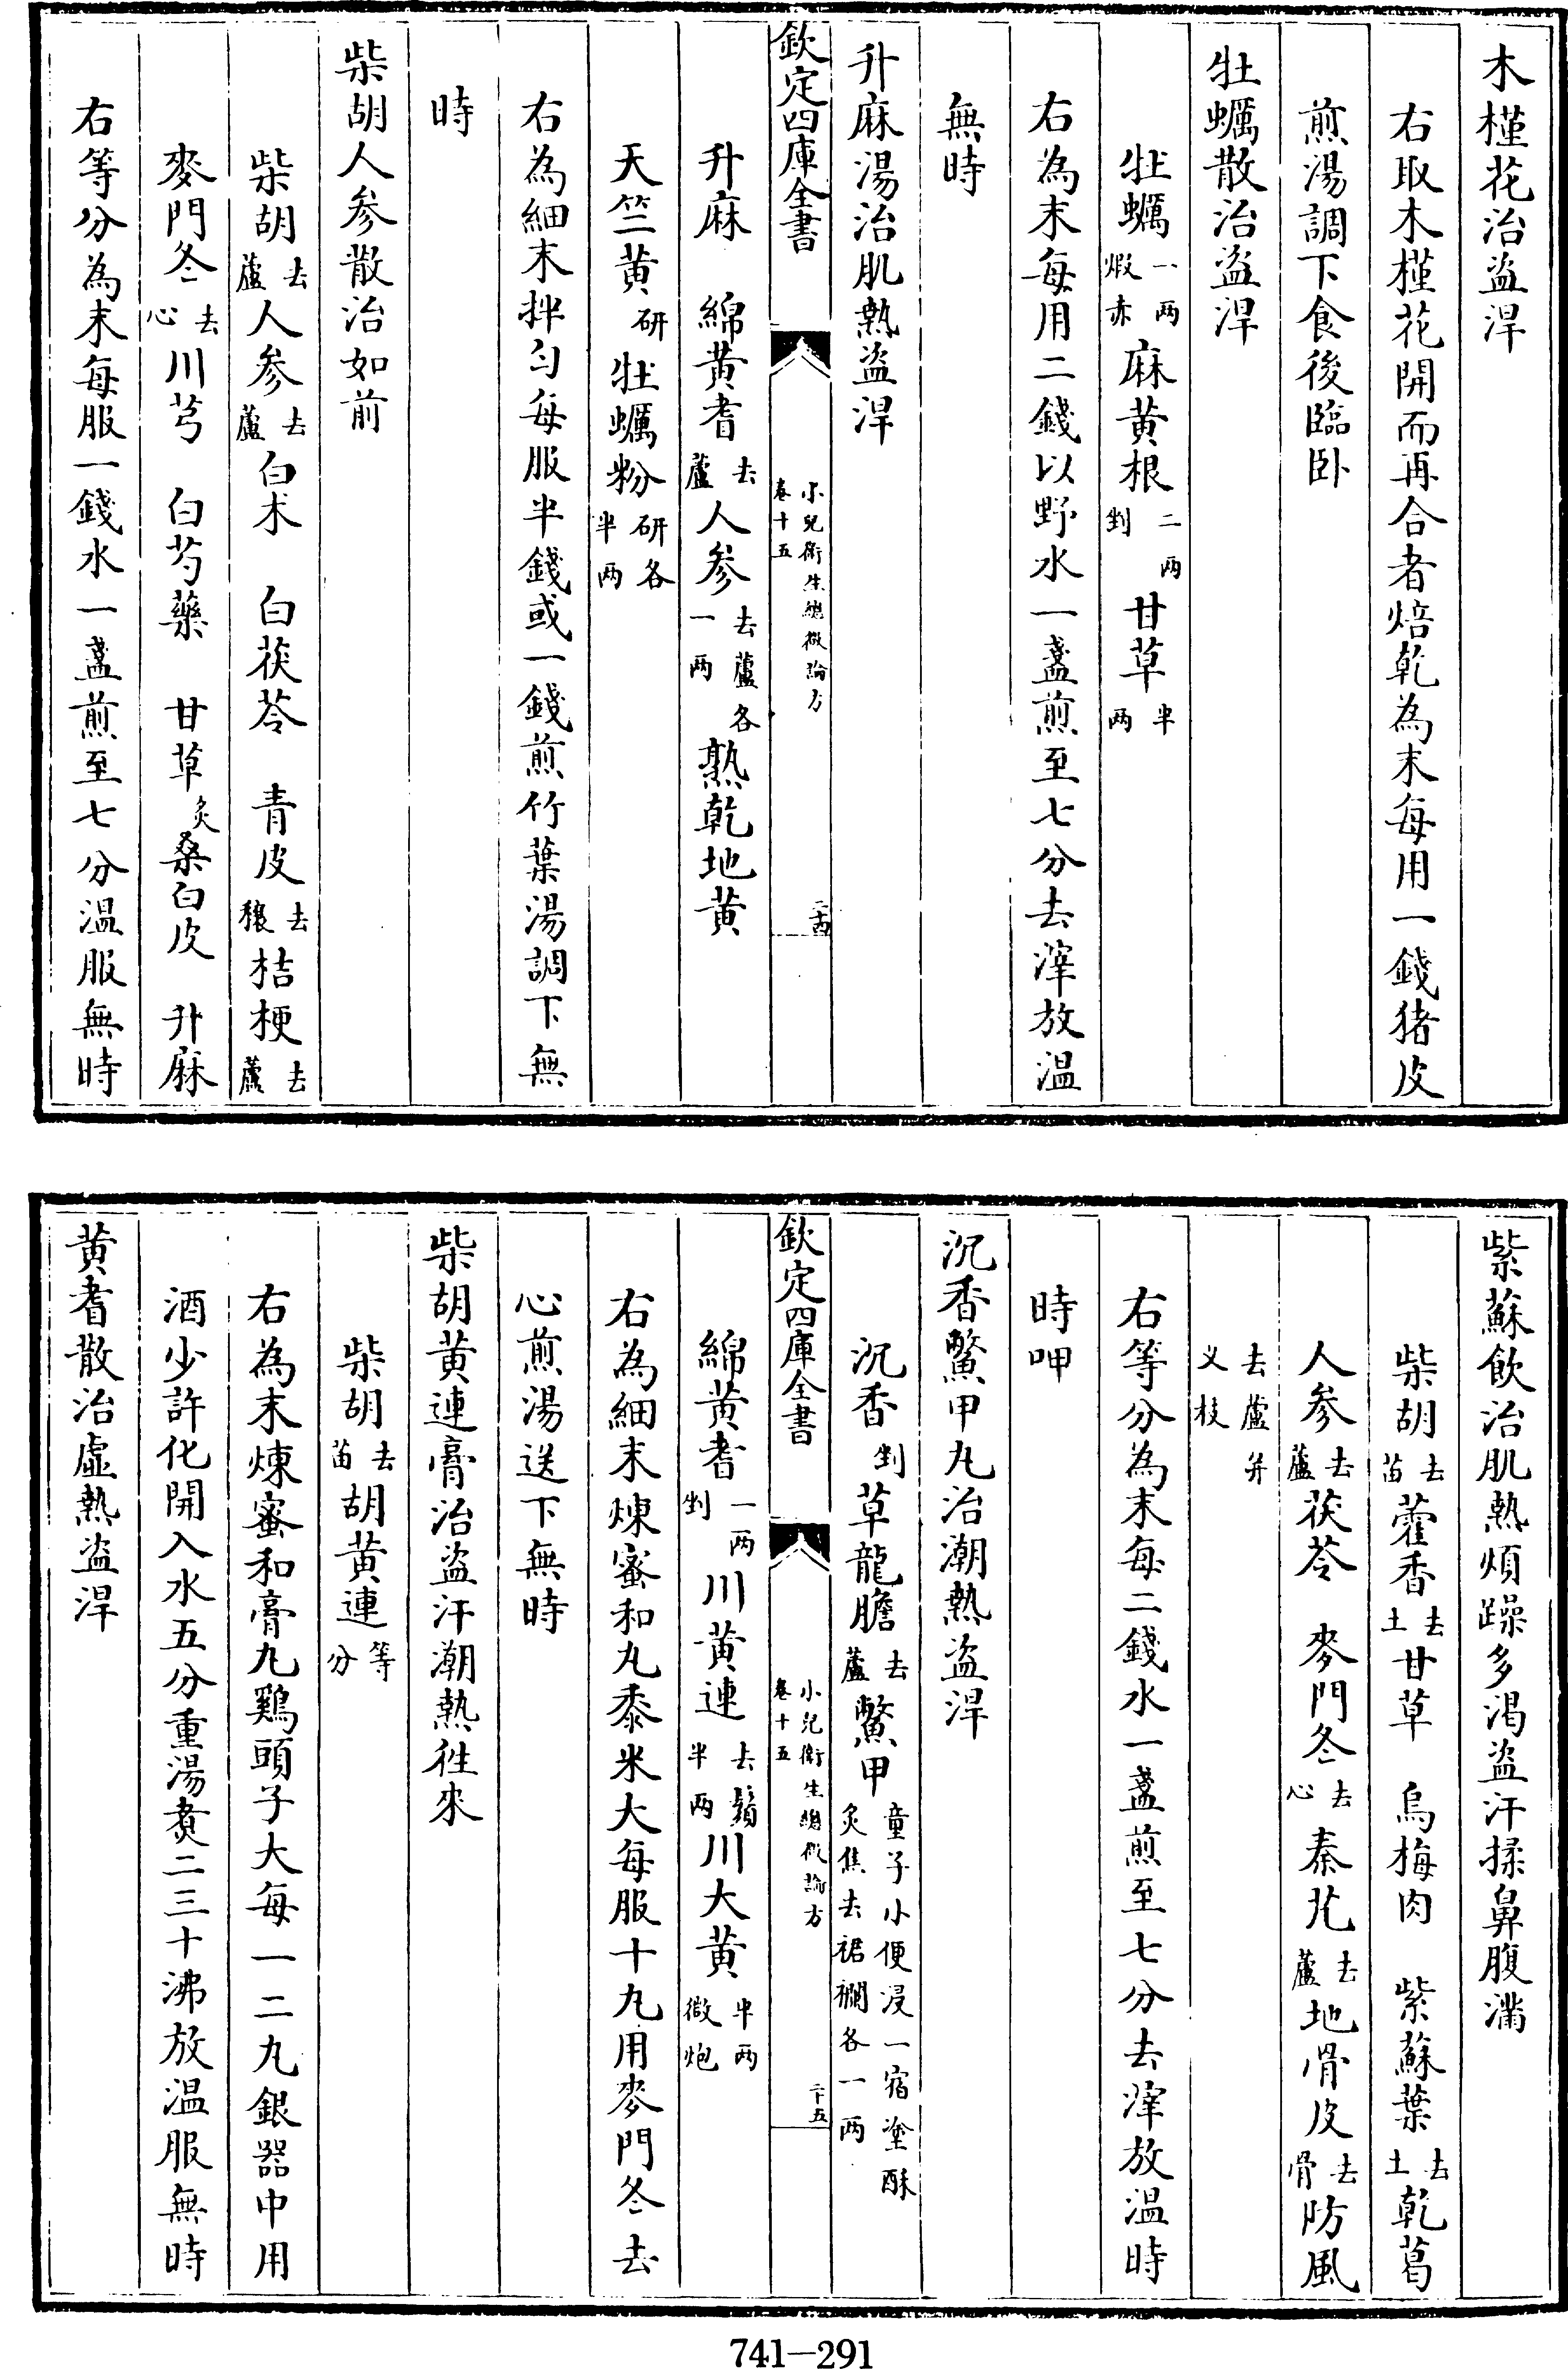 木槿花治盗汗
右取木槿花開而再合者焙乾為末每用一錢猪皮
煎湯調下食後臨卧
牡蠣散治盗汗
牡蠣一两煆赤麻黄根二两剉甘草半两
右為末每用二錢以野水一盞煎至七分去滓放温
無時
升麻湯治肌熱盗汗
欽定四庫全書
小兒衛生總微論方
卷十五
二十四
升麻　綿黄耆去蘆人參去蘆各一两熟乾地黄
天竺黄研牡蠣粉研各半两
右為細末拌匀每服半錢或一錢煎竹葉湯調下無
時
柴胡人參散治如前
柴胡去蘆人參去蘆白术　白茯苓　青皮去穰桔梗去蘆
麥門冬去心川芎　白芍藥　甘草炙桑白皮　升麻
右等分為末每服一錢水一盞煎至七分温服無時
紫蘇飲治肌熱煩躁多渴盗汗揉鼻腹滿
柴胡去苗藿香去土甘草　烏梅肉　紫蘇葉去土乾葛
人參去蘆茯苓　麥門冬去心秦艽去蘆地骨皮去骨防風
去蘆并义枝
右等分為末每二錢水一盞煎至七分去滓放温時
時呷
沉香鱉甲丸治潮熱盗汗
沉香剉草龍膽去蘆鱉甲童子小便浸一宿塗酥炙焦去裙襴各一两
欽定四庫全書
小兒衛生總微論方
卷十五
二十五
綿黄耆一两剉川黄連去鬚半两川大黄半两微炮
右為細末煉蜜和丸黍米大每服十丸用麥門冬去
心煎湯送下無時
柴胡黄連膏治盗汗潮熱徃來
柴胡去苗胡黄連等分
右為末煉蜜和膏丸鷄頭子大每一二丸銀器中用
酒少許化開入水五分重湯煑二三十沸放温服無時
黄耆散治虚熱盗汗
741—291